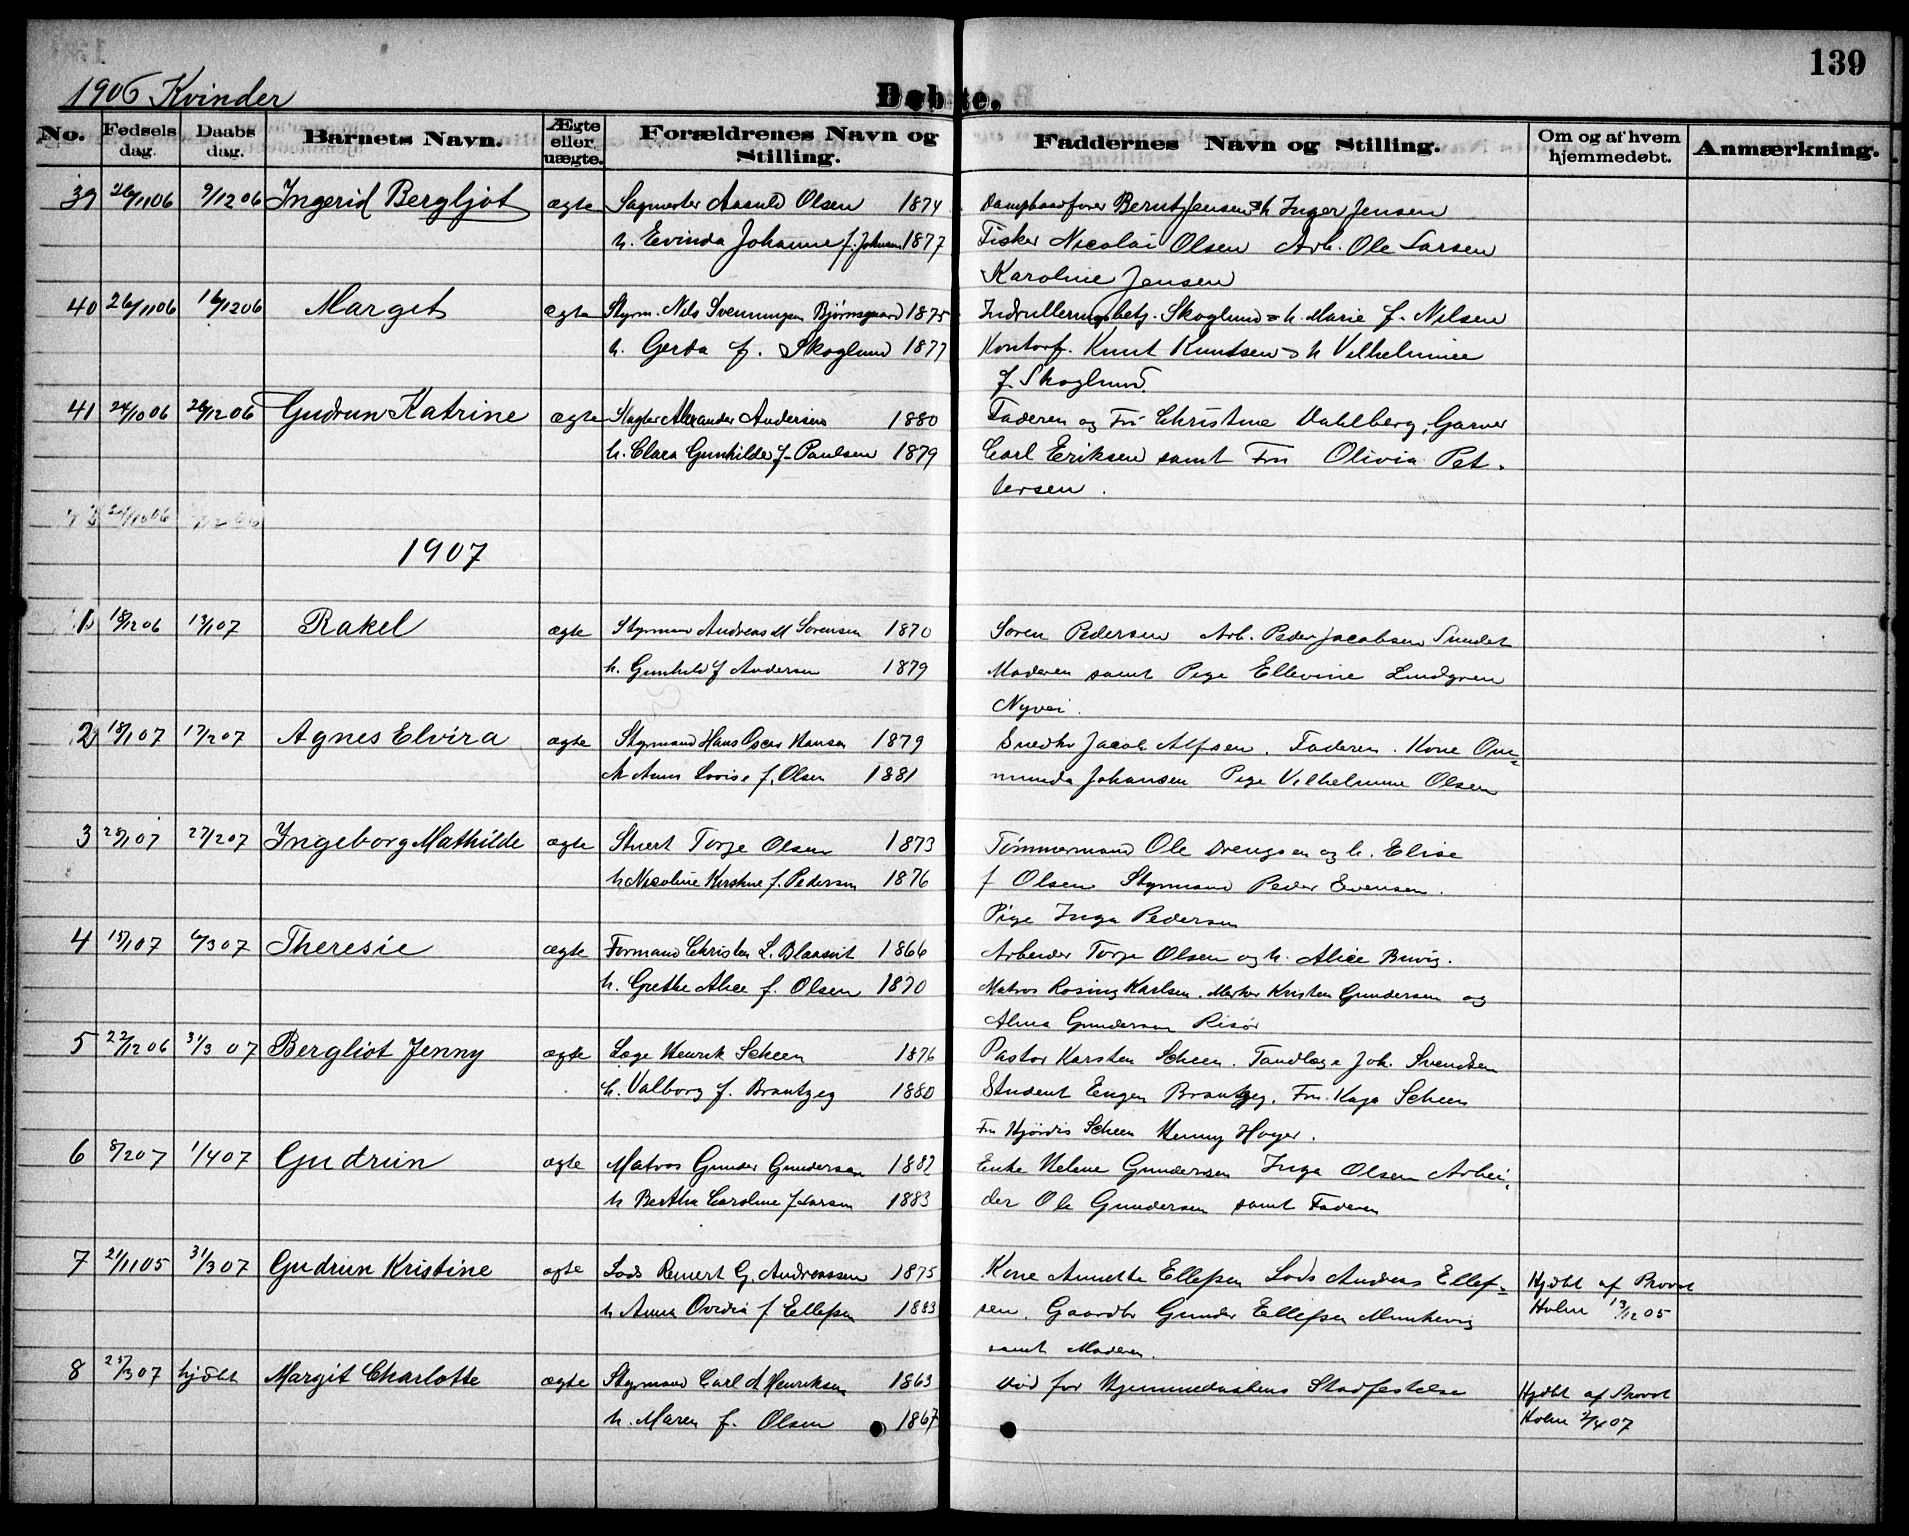 139
1906 Kvinder
Døbte.
No. Fødsels dag. Daabs dag. Barnets Navn. Ægte eller uægte. Forældrenes Navn og Stilling. Faddernes Navn og Stilling. Om og af hvem hjemmedøbt. Anmærkning.
39 26/11 06 9/12 06 Ingerid Bergljot ægte Sagmester Olsen 1874 Bernt Jensen & h. Inger Jensen
h. Evinda Johanne f. Johnsen 1877 Fisker Nicolai Olsen Arb. Ole Larsen
Karoline Jensen
40 26/11 06 16/12 06 Marget ægte Styrm. Nils Svenningsen Bjørnsgaard 1875 Skoglund & h. Marie f. Nilsen
h. Gerda f. Skoglund 1877 Kontorf. Knut Knutsen & h Vilhelmine
f. Skoglund.
41 24/10 06 26/12 06 Gudrun Katrine ægte Alexander Andersen 1880 Faderen og Fru Christine Dahlberg, Garver
h. Clara Gunhilde f. Paulsen 1879 Carl Eriksen samt Fru Olivia Pet-
tersen.
1907
1 18/12 06 13/1 07 Rakel ægte Styrmand Andreas M Sørensen 1870 Søren Pedersen Arb. Peder Jacobsen Sundet
h. Gunhild f Andersen 1879 Moderen samt Pige Ellevine Lindgren
Nyvei.
2 18/1 07 17/2 07 Agnes Elvira ægte Styrmand Hans Oscar Hansen 1879 Snedker Jacob Alfsen. Faderen. Kone Om-
h Anna Lovise f. Olsen 1881 munda Johansen Pige Vilhelmine Olsen
3 28/1 07 27/2 07 Ingeborg Mathilde ægte Stuert Torje Olsen 1873 Tømmermand Ole Drengsen og h. Elise
h Nicoline Kirstine f. Pedersen 1876 f Olsen Styrmand Peder Evensen.
Pige Inga Pedersen
4 15/1 07 6/3 07 Theresie ægte Formand Christen L. Blaasvit 1866 Arbeider Torje Olsen og h. Alice
h. Grethe Alice f. Olsen 1870 Matros Rosing Karlsen. Kristen Gundersen og
Alma Gundersen Risør
5 22/12 06 31/3 07 Bergliot Jenny ægte Læge Henrik Scheen 1876 Pastor Karsten Scheen. Tandlæge Joh. Svendsen
h. Valborg f. Brantzeg 1880 Student Eugen Brantzeg. Fru Kaja Scheen
Frk Hjördis Scheen Henny Høyer.
6 8/2 07 1/4 07 Gudrun ægte Matros Gunder Gundersen 1882 Enke Helene Gundersen Inga Olsen Arbei-
h Bertha Caroline f Larsen 1883 der Ole Gundersen samt Faderen
7 21/11 05 31/3 07 Gudrun Kristine ægte Lods Reinert G. Andreassen 1875 Kone Annette Ellefsen Lods Andreas Ellef- Hjdbt af Provst
h Anna Ovidia f Ellefsen 1883 sen. Gaardbr Gunder Ellefsen samt Moderen. Holm 13/12 05
8 25/3 07 hjdbt Margit Charlotte ægte Styrmand Carl A Henriksen 1863 Død før Hjemmedaabens Stadfestelse Hjdbt af Provst
h. Maren f. Olsen 1867 Holm 2/4 07